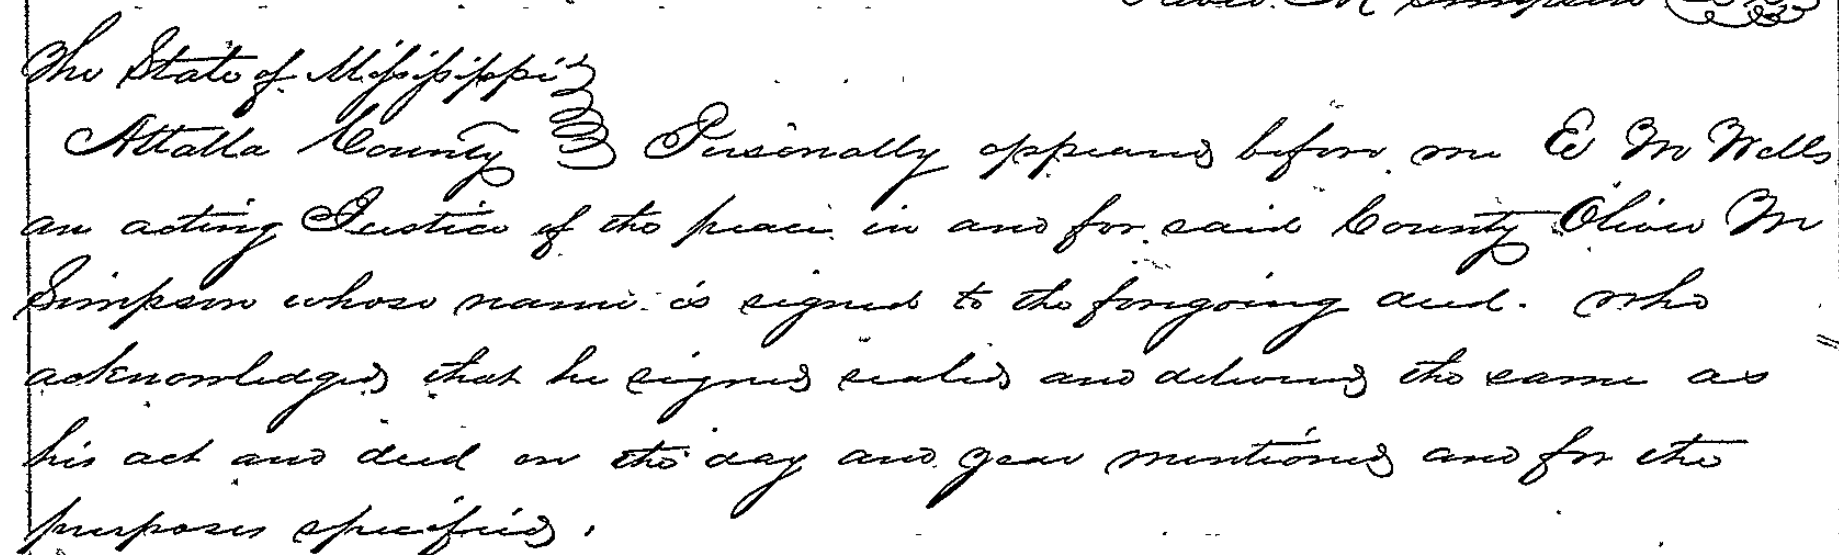 Oliver M Simpson
The State of Mississippi
Attalla County Personally appeared before me E M Wells
an acting Justice of the peace in and for said County Oliver M
Simpson whose name is signed to the foregoing deed. who
acknowledged that he signed sealed and delivered the same as
his act and deed on the day and year mentioned and for the
purposes specified.